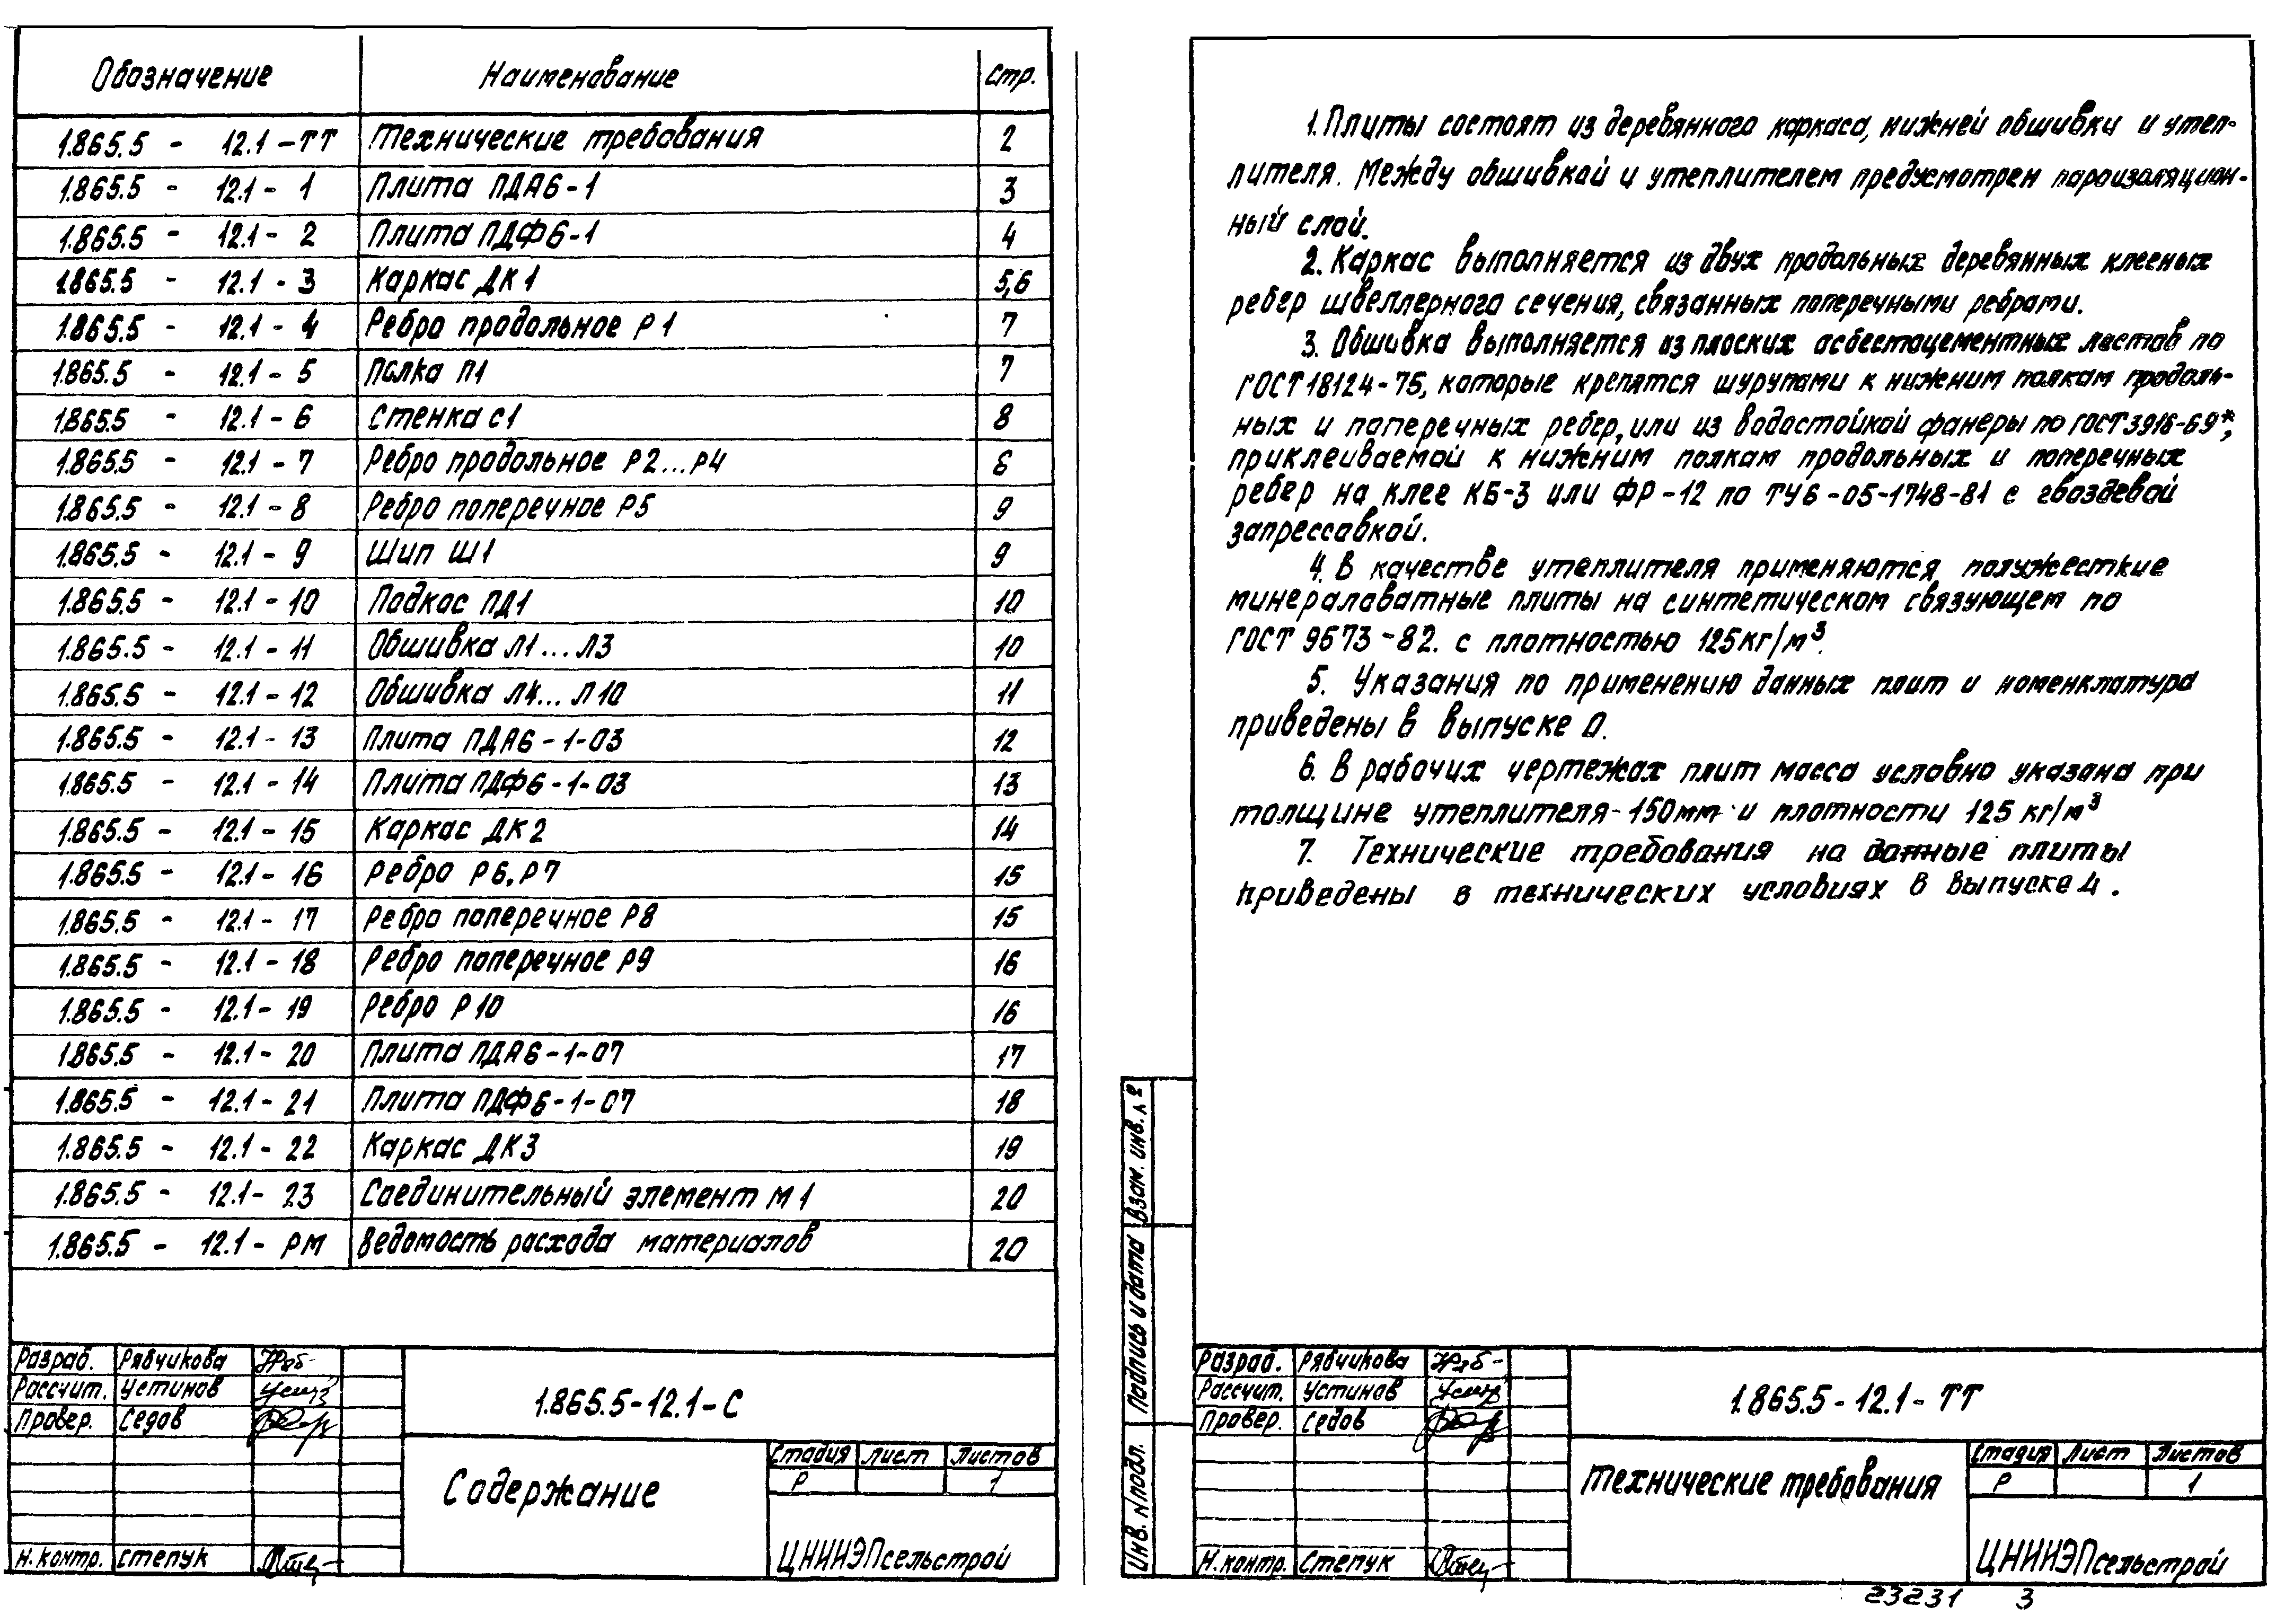 Обозначение Наименование Стр.
1.865.5 - 12.1 - ТТ Технические требования 2
1.865.5 - 12.1 - 1 Плита ПДА6-1 3
1.865.5 - 12.1 - 2 Плита ПДФ6-1 4
1.865.5 - 12.1 - 3 Каркас ДК1 5,6
1.865.5 - 12.1 - 4 Ребро продольное Р1 7
1.865.5 - 12.1 - 5 Полка П1 7
1.865.5 - 12.1 - 6 Стенка С1 8
1.865.5 - 12.1 - 7 Ребро продольное Р2...Р4 8
1.865.5 - 12.1 - 8 Ребро поперечное Р5 9
1.865.5 - 12.1 - 9 Шип Ш1 9
1.865.5 - 12.1 - 10 Подкос ПД1 10
1.865.5 - 12.1 - 11 Обшивка Л1...Л3 10
1.865.5 - 12.1 - 12 Обшивка Л4...Л10 11
1.865.5 - 12.1 - 13 Плита ПДА6-1-03 12
1.865.5 - 12.1 - 14 Плита ПДФ6-1-03 13
1.865.5 - 12.1 - 15 Каркас ДК2 14
1.865.5 - 12.1 - 16 Ребро Р6, Р7 15
1.865.5 - 12.1 - 17 Ребро поперечное Р8 15
1.865.5 - 12.1 - 18 Ребро поперечное Р9 16
1.865.5 - 12.1 - 19 Ребро Р10 16
1.865.5 - 12.1 - 20 Плита ПДА6-1-07 17
1.865.5 - 12.1 - 21 Плита ПДФ6-1-07 18
1.865.5 - 12.1 - 22 Каркас ДК3 19
1.865.5 - 12.1 - 23 Соединительный элемент М1 20
1.865.5 - 12.1 - РМ Ведомость расхода материалов 20
Разраб. Рябчикова
Рассчит. Устинов
Провер. Седов
Н.контр. Степук
1.865.5-12.1-С
Содержание
Стадия Лист Листов
Р 1
ЦНИИЭПсельстрой
1. Плиты состоят из деревянного каркаса, нижней обшивки и утеп-
лителя. Между обшивкой и утеплителем предусмотрен пароизоляцион-
ный слой.
2. Каркас выполняется из двух продольных деревянных клееных
ребер швеллерного сечения, связанных поперечными ребрами.
3. Обшивка выполняется из плоских асбестоцементных листов по
ГОСТ 18124-75, которые крепятся шурупами к нижним полкам продоль-
ных и поперечных ребер, или из водостойкой фанеры по ГОСТ 3916-69*,
приклеиваемой к нижним полкам продольных и поперечных
ребер на клее КБ-3 или ФР-12 по ТУ6-05-1748-81 с гвоздевой
запрессовкой.
4. В качестве утеплителя применяются полужесткие
минераловатные плиты на синтетическом связующем по
ГОСТ 9573-82. с плотностью 125кг/м³.
5. Указания по применению данных плит и номенклатура
приведены в выпуске 0.
6. В рабочих чертежах плит масса условно указана при
толщине утеплителя-150мм и плотности 125 кг/м³
7. Технические требования на данные плиты
приведены в технических условиях в выпуске 4.
Взам. инв. №
Подпись и дата
Инв. № подл.
Разраб. Рябчикова
Рассчит. Устинов
Провер. Седов
Н.контр. Степук
1.865.5-12.1-ТТ
Технические требования
Стадия Лист Листов
Р 1
ЦНИИЭПсельстрой
23231 3